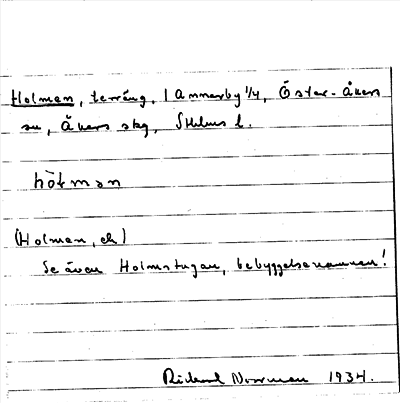 Holman, terräng, 1 Ammerby 1/4, Öster-Åkers
sn, Åkers skg, Sthlms l.
hòlman
(Holman, ek)
Se även Holmstugan, bebyggelsenamnen!
Rickard Norrman 1934.